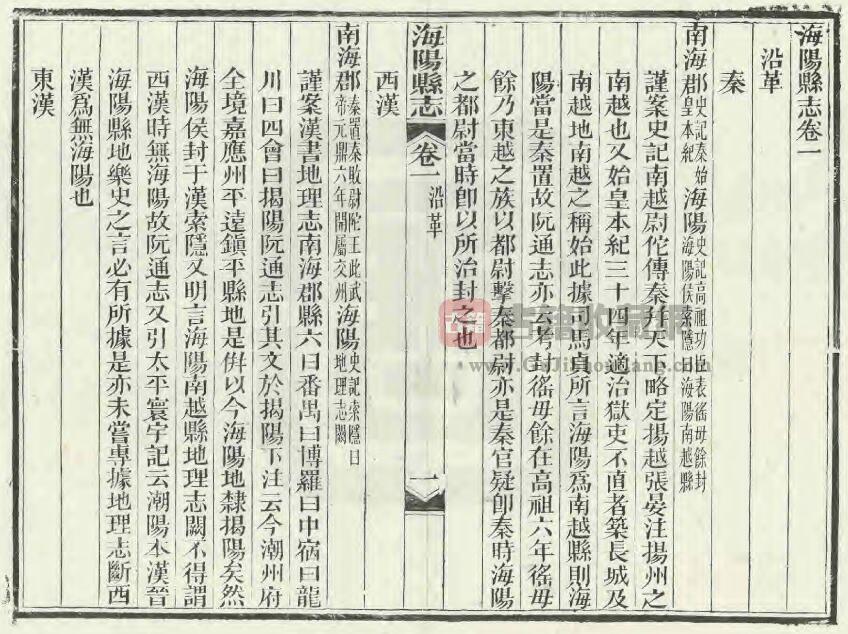 海陽縣志卷一
沿革
秦
南海郡史記秦始皇本紀海陽史記高祖功臣表徭毋餘封海陽侯索隱曰海陽南越縣
謹案史記南越尉佗傳秦并天下略定揚越張晏注揚州之
南越也又始皇本紀三十四年適治獄吏不直者築長城及
南越地南越之稱始此據司馬貞所言海陽爲南越縣則海
陽當是秦置故阮通志亦云考封徭毋餘在高祖六年徭毋
餘乃東越之族以都尉擊秦都尉亦是秦官疑卽秦時海陽
之都尉當時卽以所治封之也
海陽縣志
卷一 沿革
一
西漢
南海郡秦置秦敗尉陀王此武帝元鼎六年開屬交州海陽史記索隱曰地理志闕
謹案漢書地理志南海郡縣六曰番禺曰博羅曰中宿曰龍
川曰四會曰揭陽阮通志引其文於揭陽下注云今潮州府
全境嘉應州平遠鎭平縣地是倂以今海陽地隸揭陽矣然
海陽侯封于漢索隱又明言海陽南越縣地理志闕不得謂
西漢時無海陽故阮通志又引太平寰宇記云潮陽本漢晉
海陽縣地樂史之言必有所據是亦未嘗專據地理志斷西
漢爲無海陽也
東漢